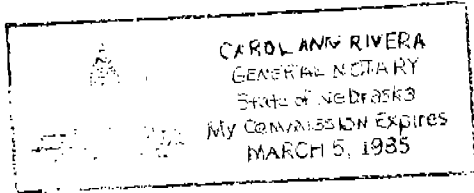 CAROL ANN RIVERA
GENERAL NOTARY
State of Nebraska
My Commission Expires
MARCH 5, 1985